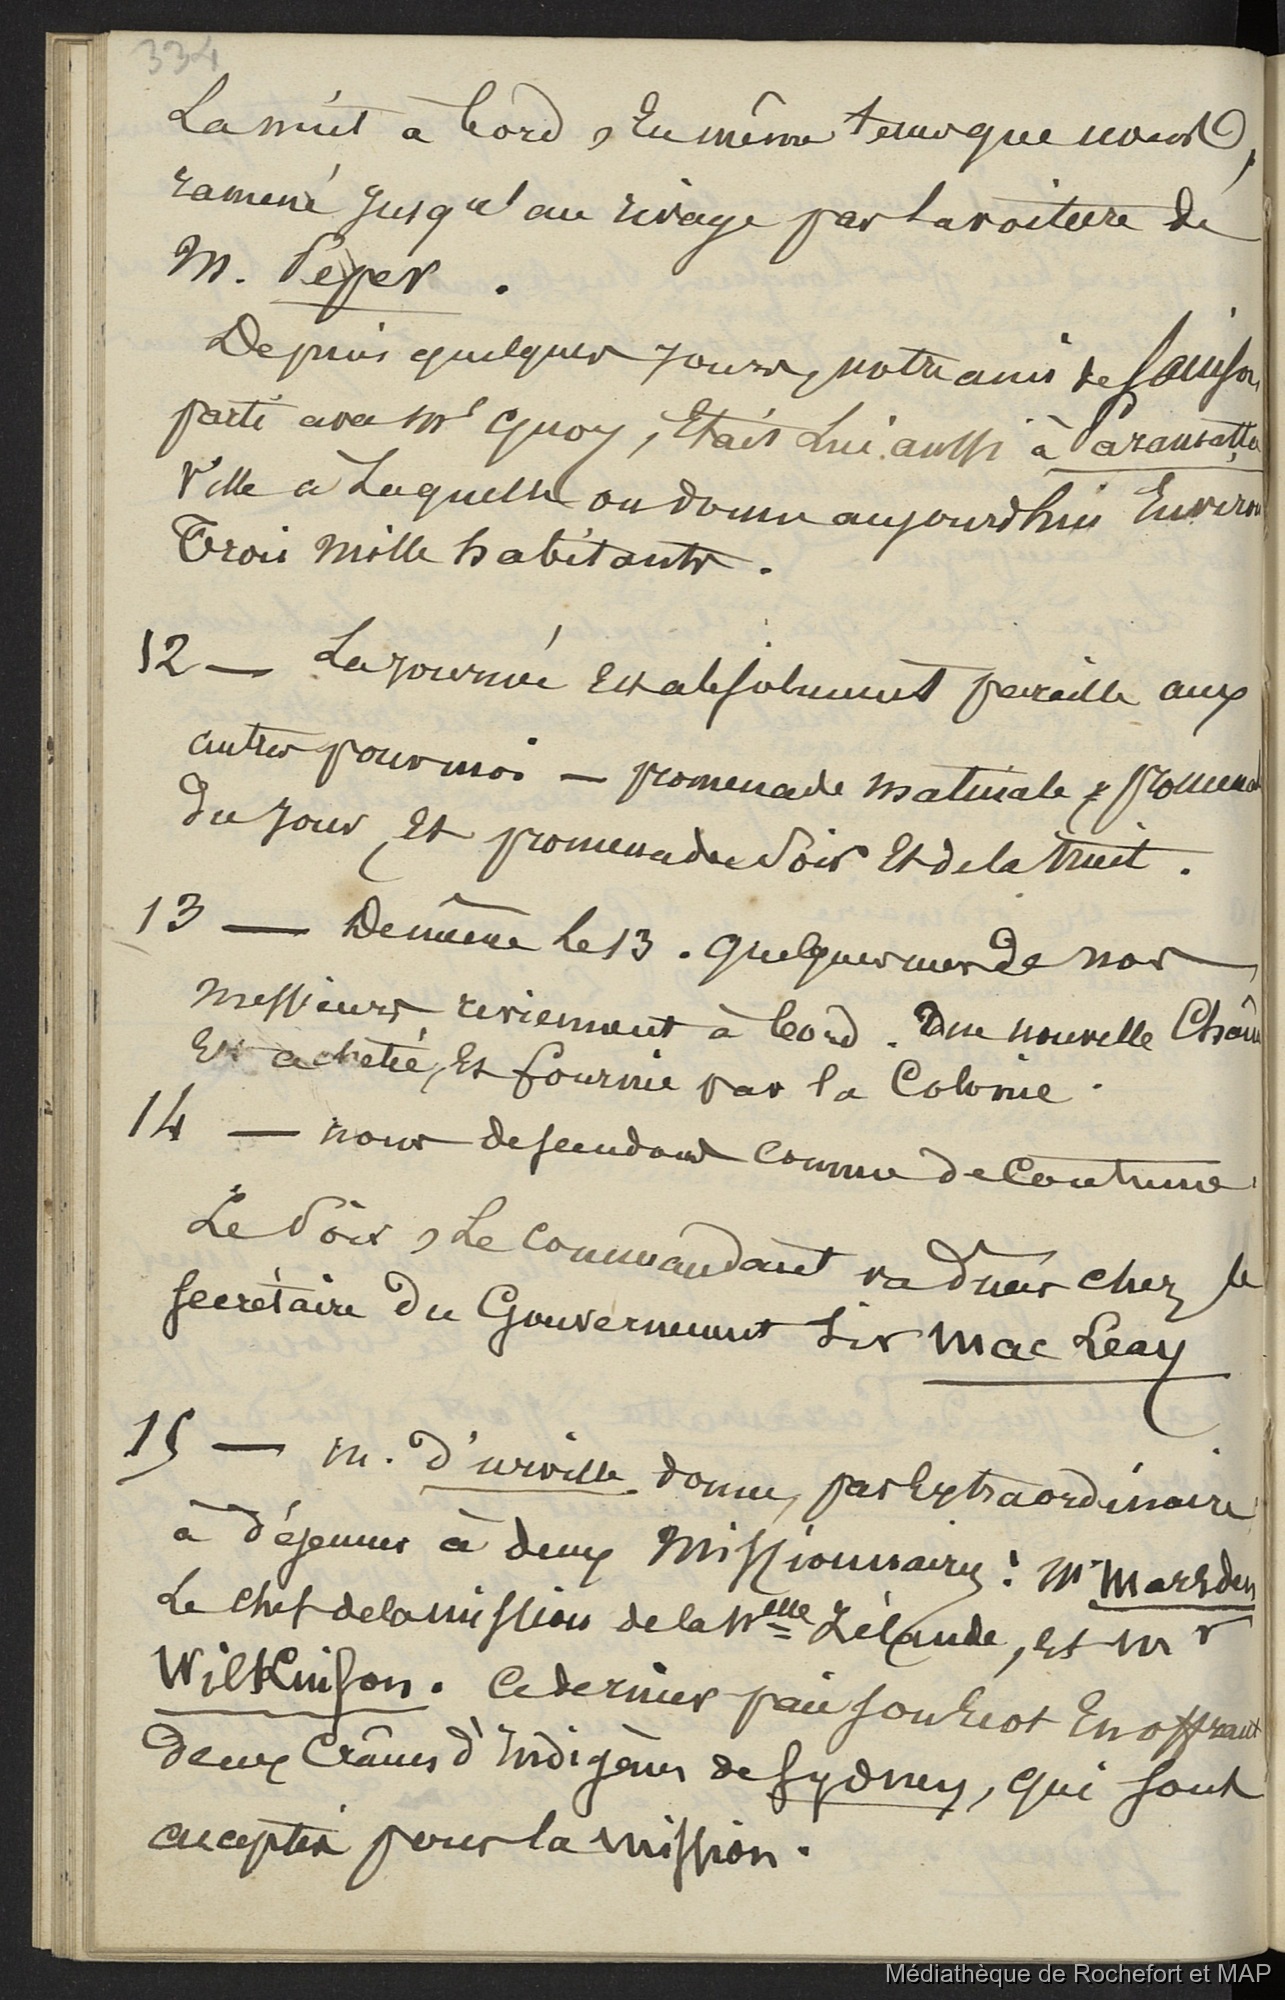 334
La nuit à bord, En même tems que nous,
ramené jusqu'au rivage par la voiture de
M. Peper.
Depuis quelques jours, notre ami de Sainson,
parti avec Mr Quoy, Etait Lui aussi à Paramatta
Ville à Laquelle on donne aujourdhui Environ
Trois Mille habitants.
12 — La journée Est absolument pareille aux
autres pour moi — promenade matinale, promenade
Du jour, Et promenade du Soir Et de la Nuit.
13 — De même le 13. quelques uns de nos
Messieurs reviennent à bord. Une nouvelle Chaîne
Est achetée, Et fournie par la Colonie.
14 — nous descendons comme de Coutume.
Le Soir, Le Commandant va dîner chez le
Secrétaire Du Gouvernement Sir Mac Leay
15 — M. D'urville donne, par Extraordinaire
à Déjeuner à deux Missionnaires: Mr Marsden
Le Chef de la Mission de la Nlle Zélande, Et Mr
Wilkinson. Ce dernier paie son Ecot En offrant
Deux Crânes d'Indigènes de Sydney, qui sont
acceptés pour la Mission.
Médiathèque de Rochefort et MAP